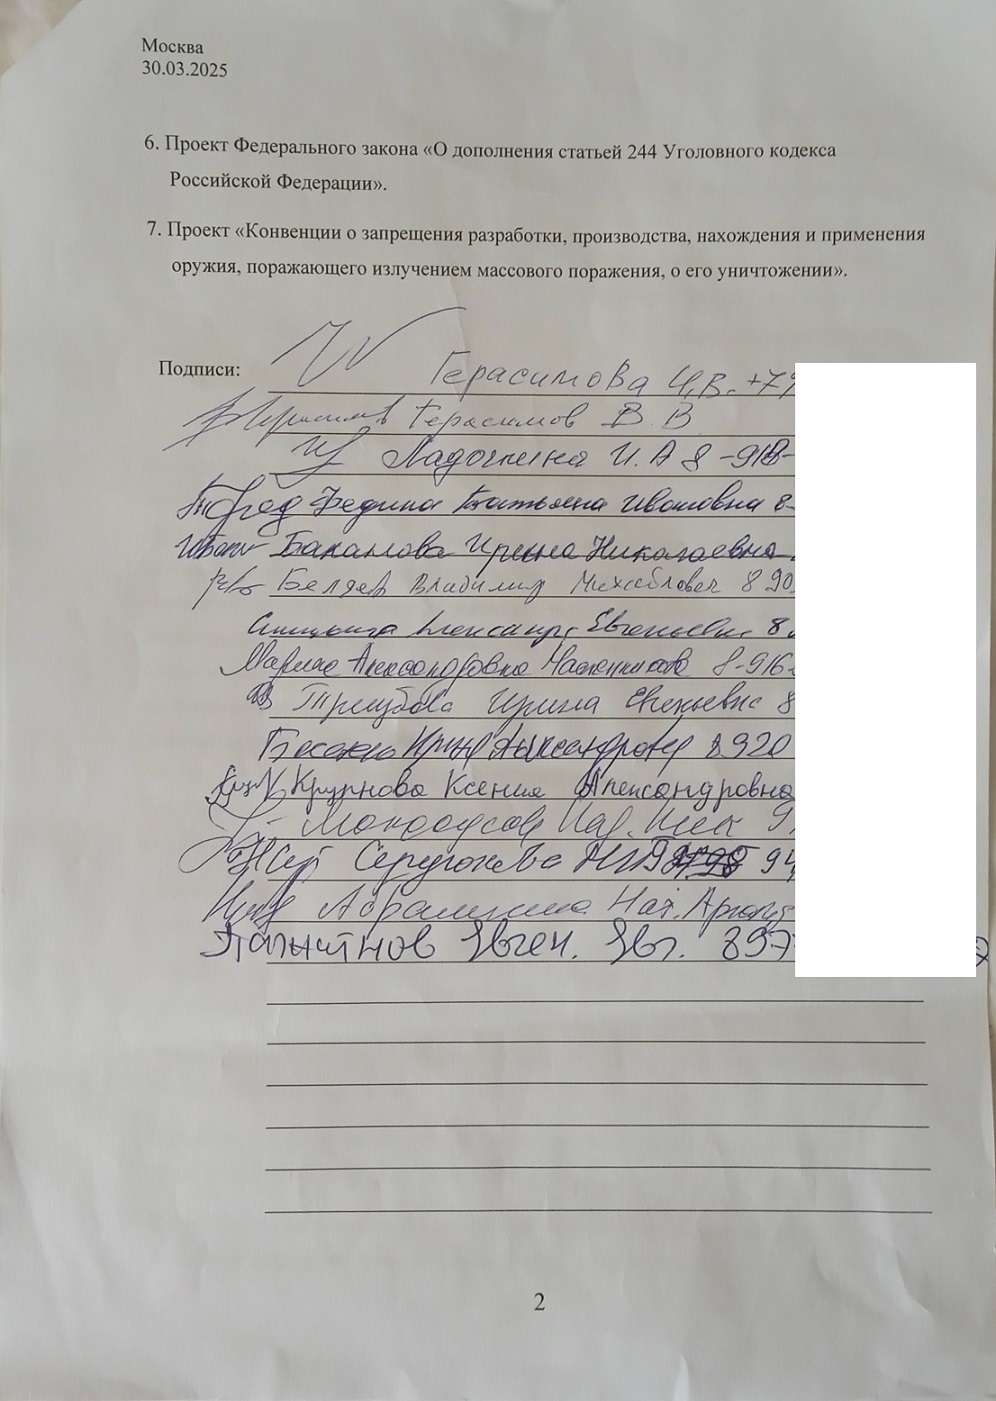 Москва
30.03.2025
6. Проект Федерального закона «О дополнения статьей 244 Уголовного кодекса
Российской Федерации».
7. Проект «Конвенции о запрещения разработки, производства, нахождения и применения
оружия, поражающего излучением массового поражения, о его уничтожении».
Подписи:
Герасимова И.В. +79
Герасимов В.В
Ладочкина И.А 8-918-
Федина Татьяна Ивановна 8-
Баканова Ирина Николаевна
Беляев Владимир Михайлович 8 90
Александр Евгеньевич 8
Марина Александровна 8-916-
Ирина Евгеньевна 8
Александровна 8920
Ксения Александровна
94
Нат.
Евген. Евг. 897
2